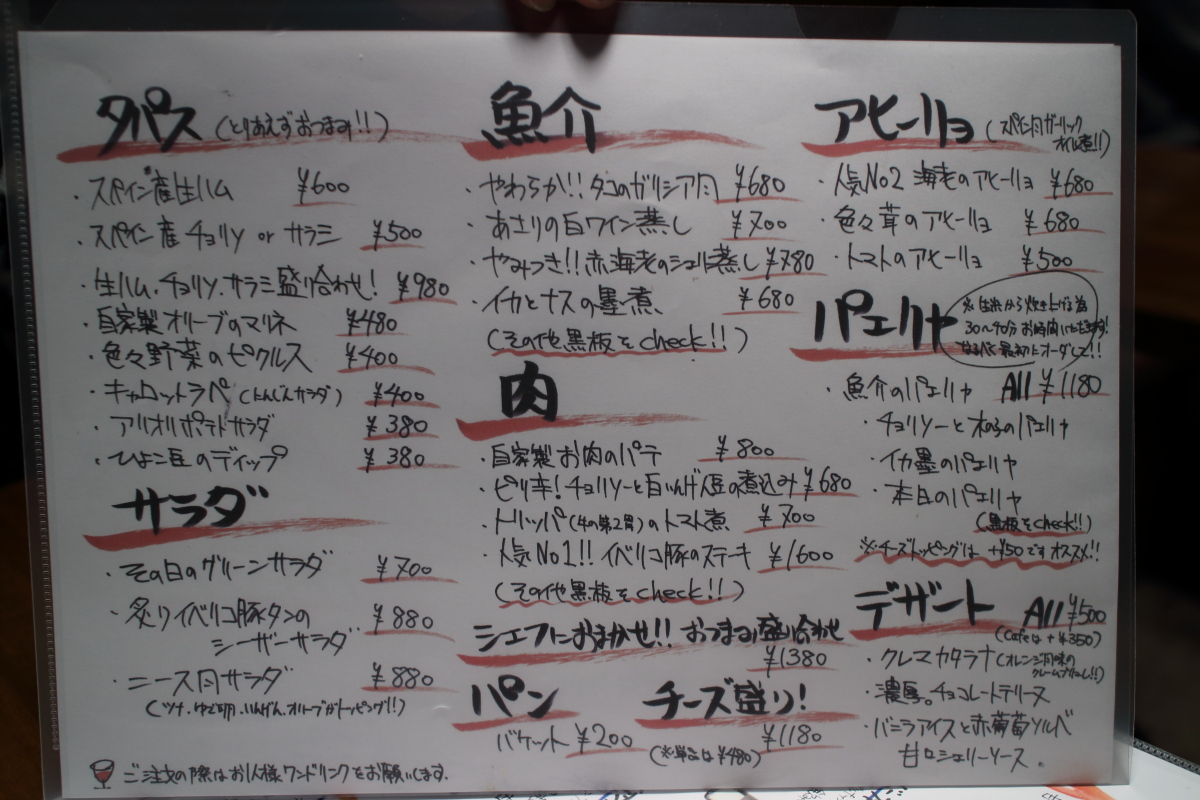 タパス (とりあえずおつまみ!!)
・スペイン産生ハム ¥600
・スペイン産チョリソ or サラミ ¥500
・生ハム、チョリソ、サラミ盛り合わせ! ¥980
・自家製オリーブのマリネ ¥480
・色々野菜のピクルス ¥400
・キャロットラペ (にんじんサラダ) ¥400
・アリオリポテトサラダ ¥380
・ひよこ豆のディップ ¥380
サラダ
・その日のグリーンサラダ ¥700
・炙りイベリコ豚タンの
シーザーサラダ ¥880
・ニース風サラダ ¥880
(ツナ、ゆで卵、いんげん、オリーブがトッピング!!)
ご注文の際はお1人様ワンドリンクをお願いします。
魚介
・やわらか!! タコのガリシア風 ¥680
・あさりの白ワイン蒸し ¥700
・やみつき!! 赤海老のシェリー蒸し ¥780
・イカとナスの墨煮 ¥680
(その他黒板をcheck!!)
肉
・自家製お肉のパテ ¥800
・ピリ辛! チョリソーと白いんげん豆の煮込み ¥680
・トリッパ(牛の第2胃)のトマト煮 ¥700
・人気No1!! イベリコ豚のステーキ ¥1600
(その他黒板をcheck!!)
シェフにおまかせ!! おつまみ盛り合わせ
¥1380
パン
バケット ¥200
チーズ盛り!
¥1180
(※単品は¥480)
アヒージョ (スペイン風ガーリック
オイル煮!!)
・人気No2 海老のアヒージョ ¥680
・色々茸のアヒージョ ¥680
・トマトのアヒージョ ¥500
パエリヤ
※生米から炊き上げる為
30〜40分お時間いただきます!
なるべく最初にオーダして!!
・魚介のパエリヤ All ¥1180
・チョリソーと木の子のパエリヤ
・イカ墨のパエリヤ
・本日のパエリヤ
(黒板をcheck!!)
※チーズトッピングは +¥150ですオススメ!!
デザート All ¥500
(Cafeは+¥350)
・クレマカタラナ(オレンジ風味の
クレームブリュレ!!)
・濃厚。チョコレートテリーヌ
・バニラアイスと赤葡萄ソルベ
甘口シェリーソース。